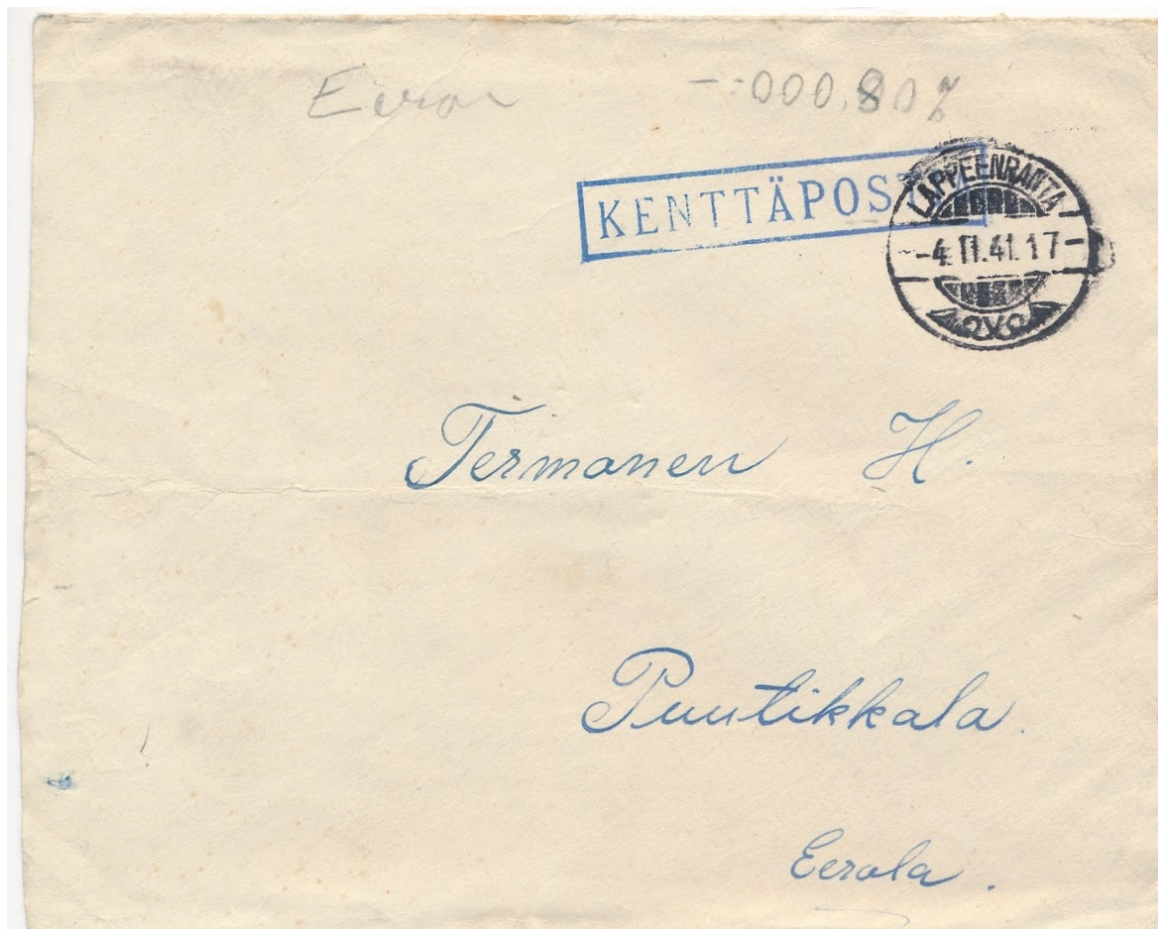 Eeron -:000,80%
KENTTÄPOSTIA
LAPPEENRANTA
-4.II.41.17-
Termonen H.
Puutikkala.
Eerola.